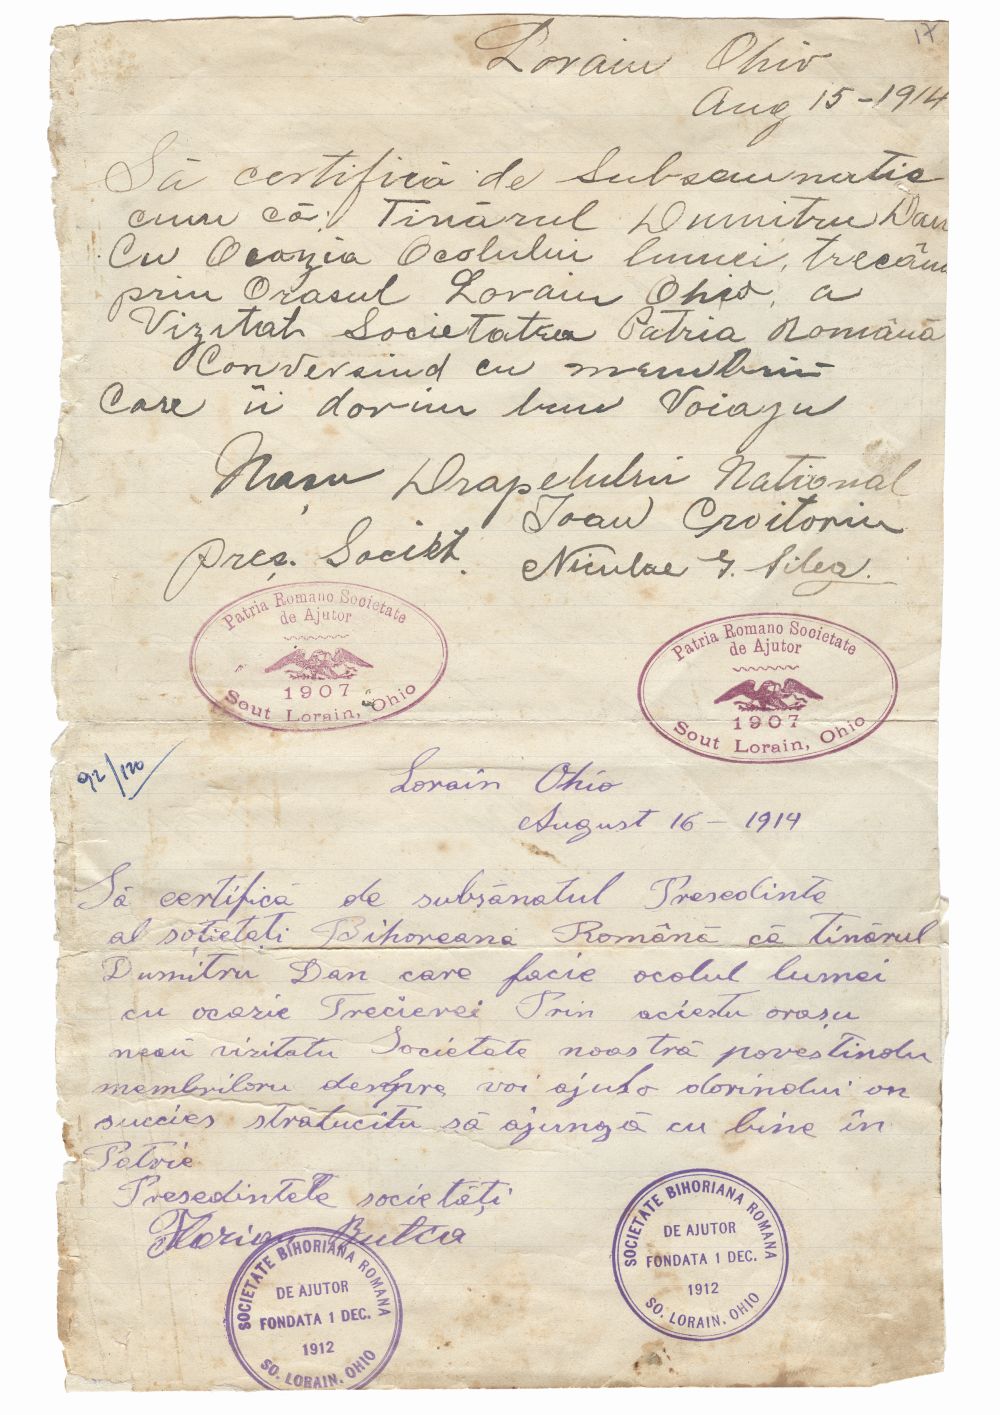 17
Lorain Ohio
Aug 15 - 1914
Să certifică de Subsemnatic
cum că; Tinărul Dumitru Dan
Cu Ocazia Ocolului lumei, trecănd
prin Orasul Lorain Ohio, a
Vizitat Societatea Patria Română
Conversind cu membrii
Care ii dorim bun Voiazu
Nașu Drapelului National
Ioan Croitoriu
preș. Societ. Niculae G.
Patria Romano Societate
de Ajutor
1907
Sout Lorain, Ohio
Patria Romano Societate
de Ajutor
1907
Sout Lorain, Ohio
92/120
Lorain Ohio
August 16 - 1914
Să certifică de subsănatul Presedinte
al soțietați Bihoreana Română că tinărul
Dumitru Dan care facie ocolul lumei
cu ocazie Trecierei Prin aciestu orașu
neaŭ vizitatu Societate noastră povestindu
membriloru despre voi ajulo dorindui on
succies strătucitu să ajungă cu bine în
Patrie
Presedintele societăți
Florian Butca
SOCIETATE BIHORIANA ROMANA
DE AJUTOR
FONDATA 1 DEC.
1912
SO. LORAIN, OHIO
SOCIETATE BIHORIANA ROMANA
DE AJUTOR
FONDATA 1 DEC.
1912
SO. LORAIN, OHIO